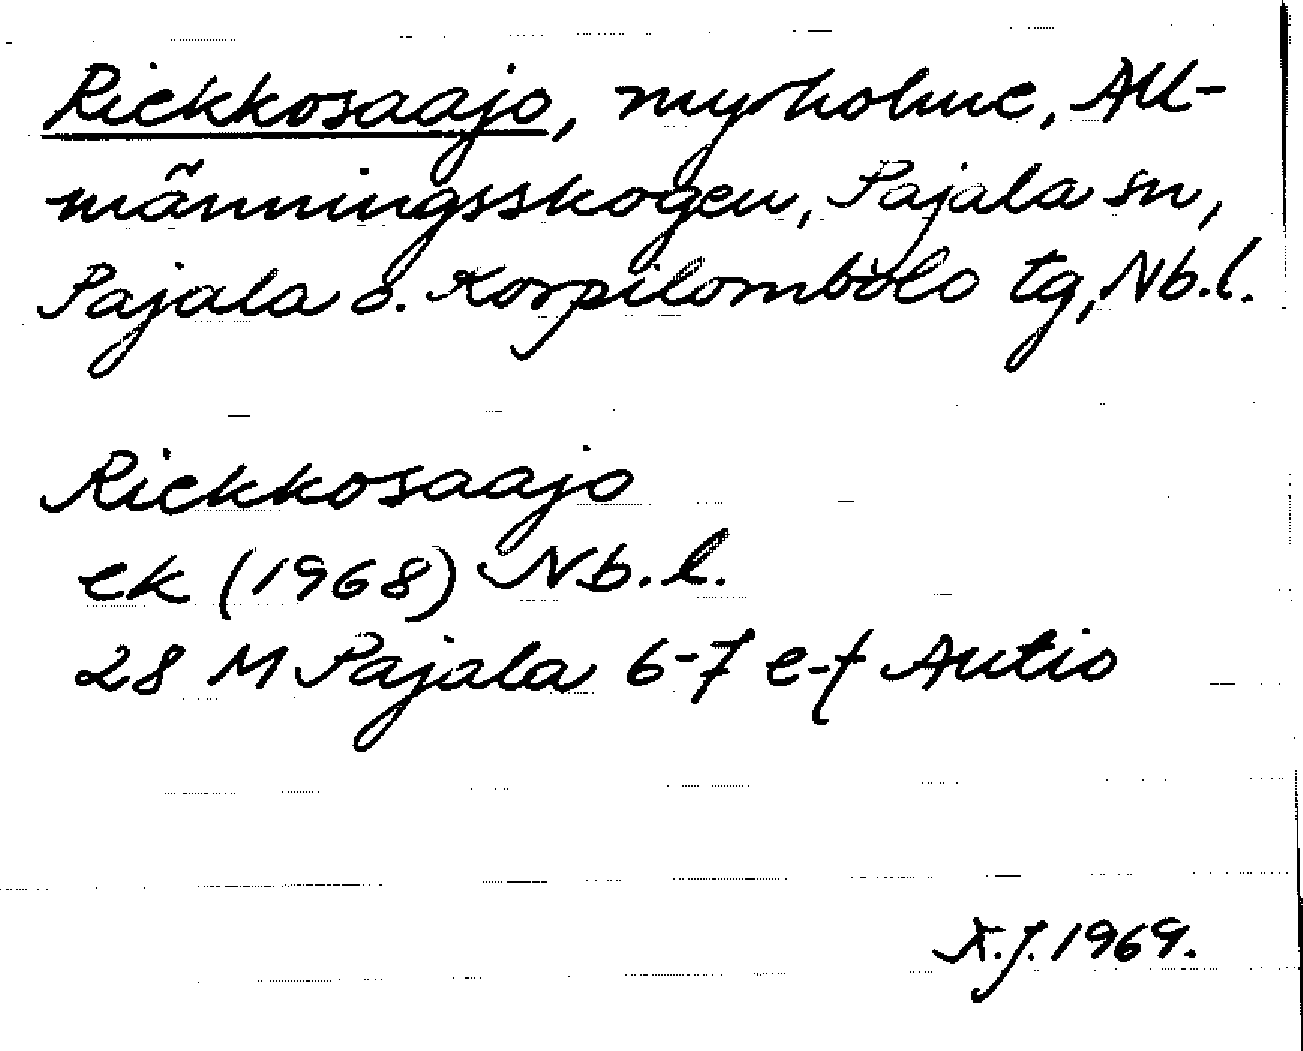 Riekkosaajo, myrholme, All-
männingsskogen, Pajala sn,
Pajala o. Korpilombolo tg, Nb.l.
Riekkosaajo
ek (1968) Nb.l.
28 M Pajala 6-7 e-f Autio
K.J. 1969.